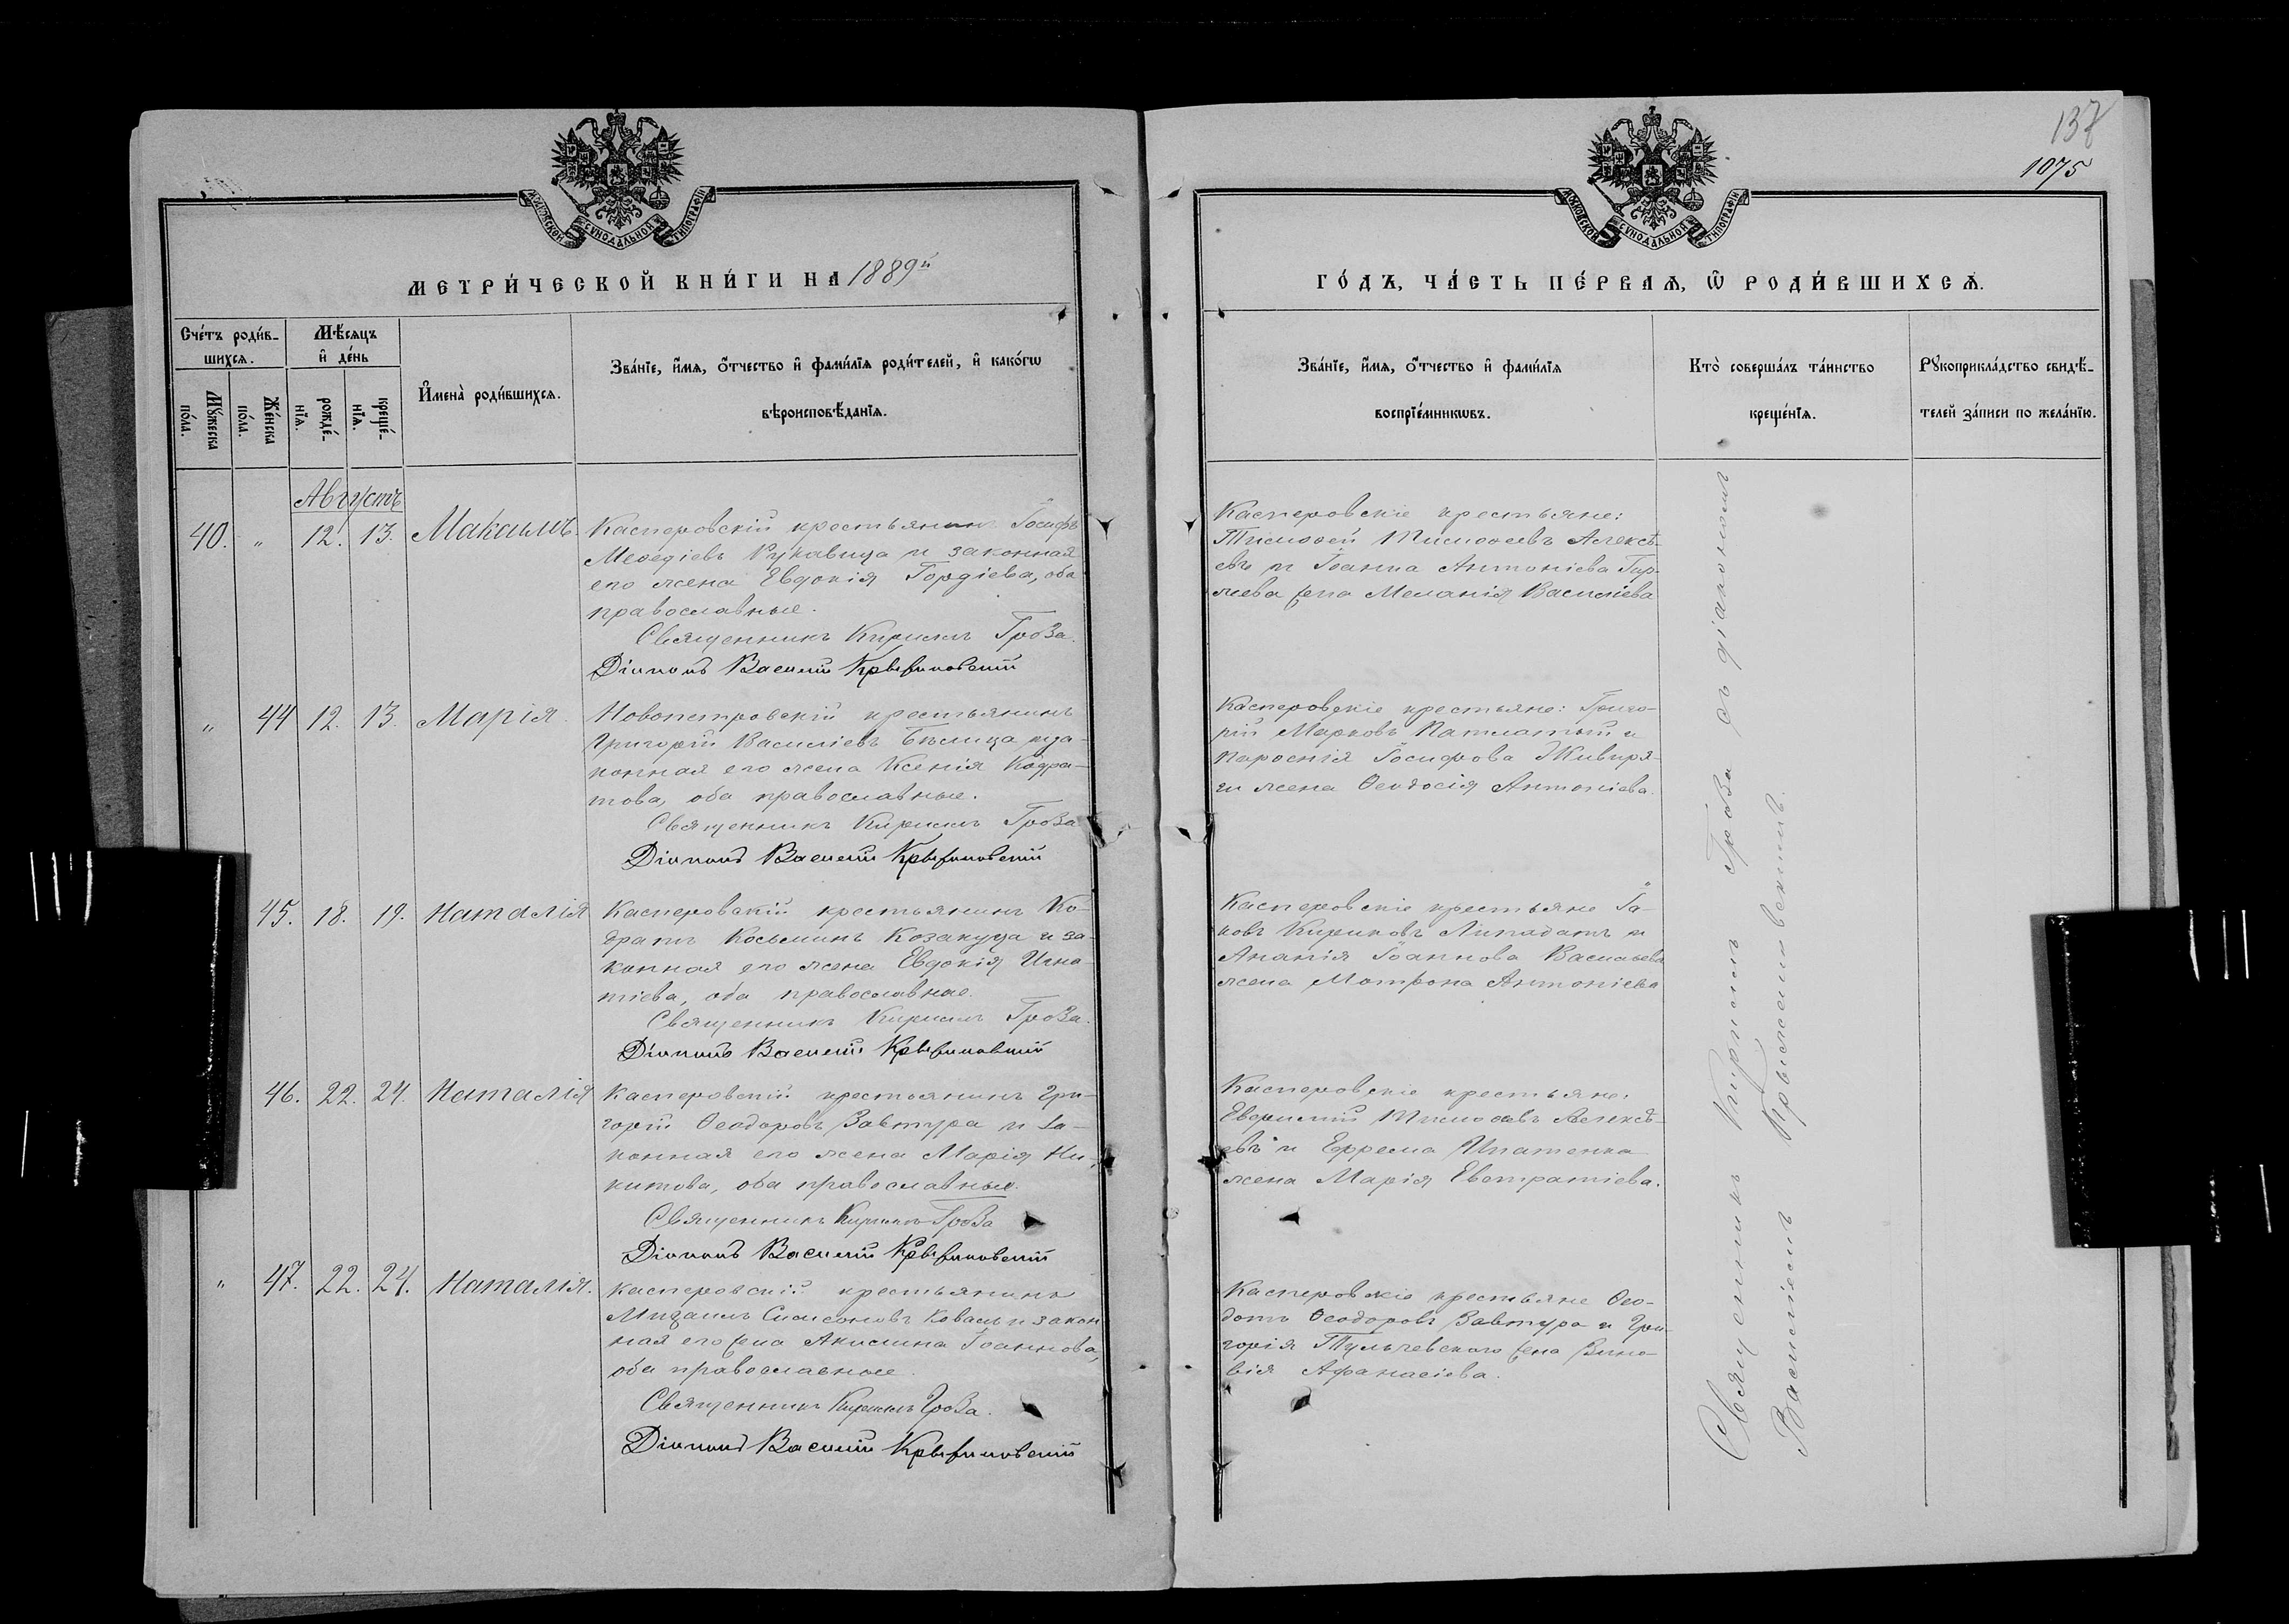 137
1075
МОСКОВСКОЙ СУНОДАЛЬНОЙ ТИПОГРАФІИ
МОСКОВСКОЙ СУНОДАЛЬНОЙ ТИПОГРАФІИ
МЕТРИ́ЧЕСКОЙ КНИ́ГИ НА 1889й
ГО́ДЪ, ЧА́СТЬ ПЕ́РВАѦ, Ѡ҆ РОДИ́ВШИХСѦ.
Сче́тъ роди́в-
шихсѧ.
Мꙋ́жеска по́ла.
Же́нска по́ла.
Мѣ́сѧцъ
и҆ де́нь
рожде́-нїѧ.
креще́-нїѧ.
И҆мена̀ роди́вшихсѧ.
Зва́нїе, и҆́мѧ, ѻ҆́тчество и҆ фами́лїѧ роди́телей, и҆ како́гѡ
вѣроисповѣ́данїѧ.
Зва́нїе, и҆́мѧ, ѻ҆́тчество и҆ фами́лїѧ
воспрїе́мникѡвъ.
Кто̀ соверша́лъ та́инство
креще́нїѧ.
Рꙋкоприкла́дство свидѣ́-
телей за́писи по жела́нїю.
Августъ
40. " 12. 13. Макаимъ.
Касперовскій крестьянинъ Іосифъ
Меѳодіевъ Рукавица и законная
его жена Евдокія Гордіева, оба
православные.
Священникъ Кириллъ Гроза.
Діаконъ Василій Крыжановскій
Касперовскіе крестьяне:
Тимоѳей Тимоѳеевъ Алексѣ-
евъ и Іоанна Антоніева
жена Меланія Василіева
" 44 12. 13. Марія.
Новопетровскій крестьянинъ
Григорій Василіевъ Бѣлица и за-
конная его жена Ксенія Кодра-
това, оба православные.
Священникъ Кириллъ Гроза
Діаконъ Василій Крыжановскій
Касперовскіе крестьяне: Григо-
рій Марковъ Патлатый и
Іосифова
жена Ѳеодосія Антоніева.
45. 18. 19. Наталія
Касперовскій крестьянинъ Ко-
дратъ Косьминъ Козакуца и за-
конная его жена Евдокія Игна-
тіева, оба православные.
Священникъ Кириллъ Гроза.
Діаконъ Василій Крыжановскій
Касперовскіе крестьяне Іа-
ковъ Кириковъ Липадатъ и
Ананія Іоаннова Васильева
жена Матрона Антоніева
46. 22. 24. Наталія
Касперовскій крестьянинъ Гри-
горій Ѳеодоровъ Завтура и за-
конная его жена Марія Ни-
китова, оба православные.
Священникъ Кириллъ Гроза
Діаконъ Василій Крыжановскій
Касперовскіе крестьяне:
Евфимій Тимоѳеевъ Алексѣ-
евъ и Ефрема Игнатенка
жена Марія Евстратіева.
" 47. 22. 24. Наталія.
Касперовскій крестьянинъ
Михаилъ Симеоновъ Коваль и закон
ная его жена Акилина Іоаннова,
оба православные.
Священникъ Кириллъ Гроза.
Діаконъ Василій Крыжановскій
Касперовскіе крестьяне Ѳео-
дотъ Ѳеодоровъ Завтура и Гри-
горія Тульчевскаго жена Зино-
вія Афанасіева.
Священникъ Кириллъ Гроза съ діакономъ
Василіемъ Крыжановскимъ.